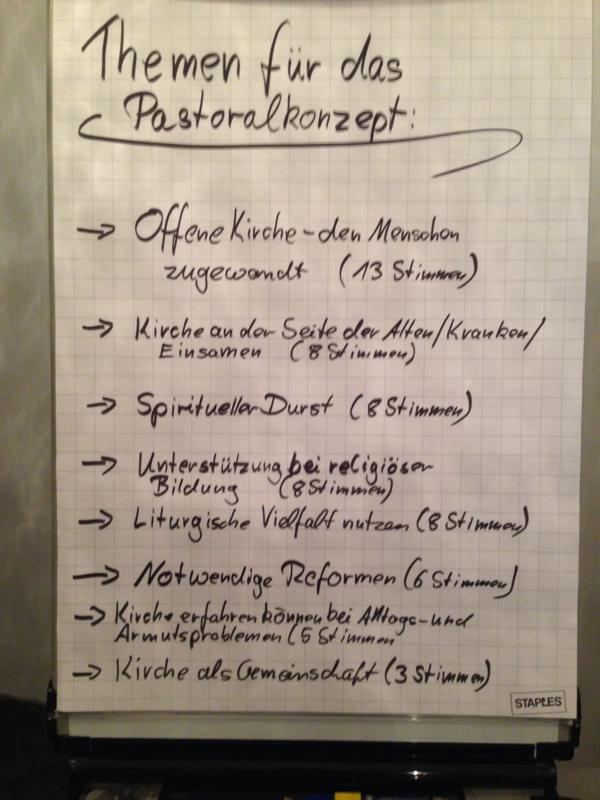 Themen für das
Pastoralkonzept:
→ Offene Kirche - den Menschen
zugewandt (13 Stimmen)
→ Kirche an der Seite der Alten/Kranken/
Einsamen (8 Stimmen)
→ Spiritueller Durst (8 Stimmen)
→ Unterstützung bei religiöser
Bildung (8 Stimmen)
→ Liturgische Vielfalt nutzen (8 Stimmen)
→ Notwendige Reformen (6 Stimmen)
→ Kirche erfahren können bei Alltags- und
Armutsproblemen (5 Stimmen
→ Kirche als Gemeinschaft (3 Stimmen)
STAPLES